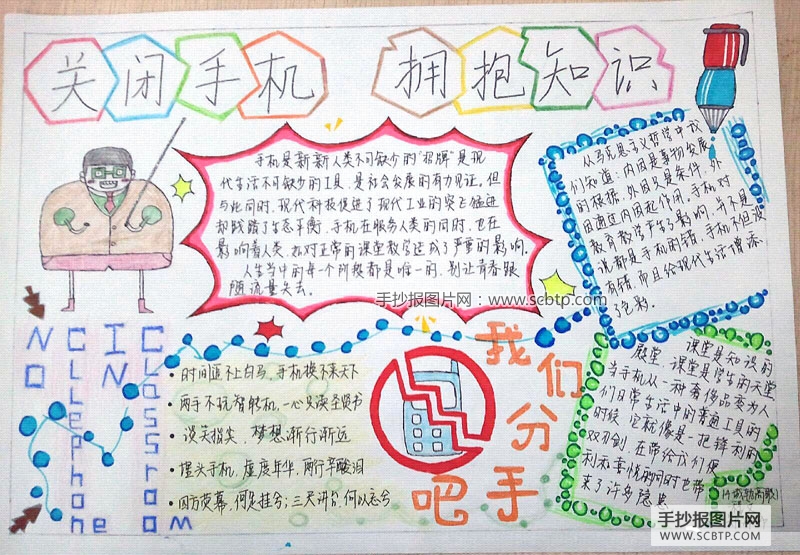 关闭手机 拥抱知识
手机是新新人类不可缺少的"招牌"是现
代生活不可缺少的工具，是社会发展的有力见证。但
与此同时，现代科技促进了现代工业的突飞猛进
却践踏了生态平衡，手机在服务人类的同时，也在
影响着人类，也对正常的课堂教学造成了严重的影响。
人生当中的每个阶段都是唯一的，别让青春跟
随流量失去。
手抄报图片网：www.scbtp.com
从马克思主义哲学中我
们知道，内因是事物发展
的根据，外因是条件，外
因通过内因起作用，手机对
教育教学产生了影响，并不是
说都是手机的错，手机不但没
有错，而且给现代生活增添
了色彩。
NO
Cllephone
IN
Classroom
•时间追不上白马，手机换不来天下
•两手不玩智能机，一心只读圣贤书
•谈笑指尖，梦想渐行渐远
•埋头手机，虚度年华，两行辛酸泪
•四方荧幕，何足挂兮；三尺讲台，何以忘兮
我们分手吧
课堂是知识的
殿堂，课堂是学生的天堂
当手机从一种奢侈品变为人
们日常生活中的普通工具的
时候，它就像是一把锋利的
双刃剑，在带给我们便
利和喜悦的同时也带
来了许多隐患
手抄报图片网
WWW.SCBTP.COM